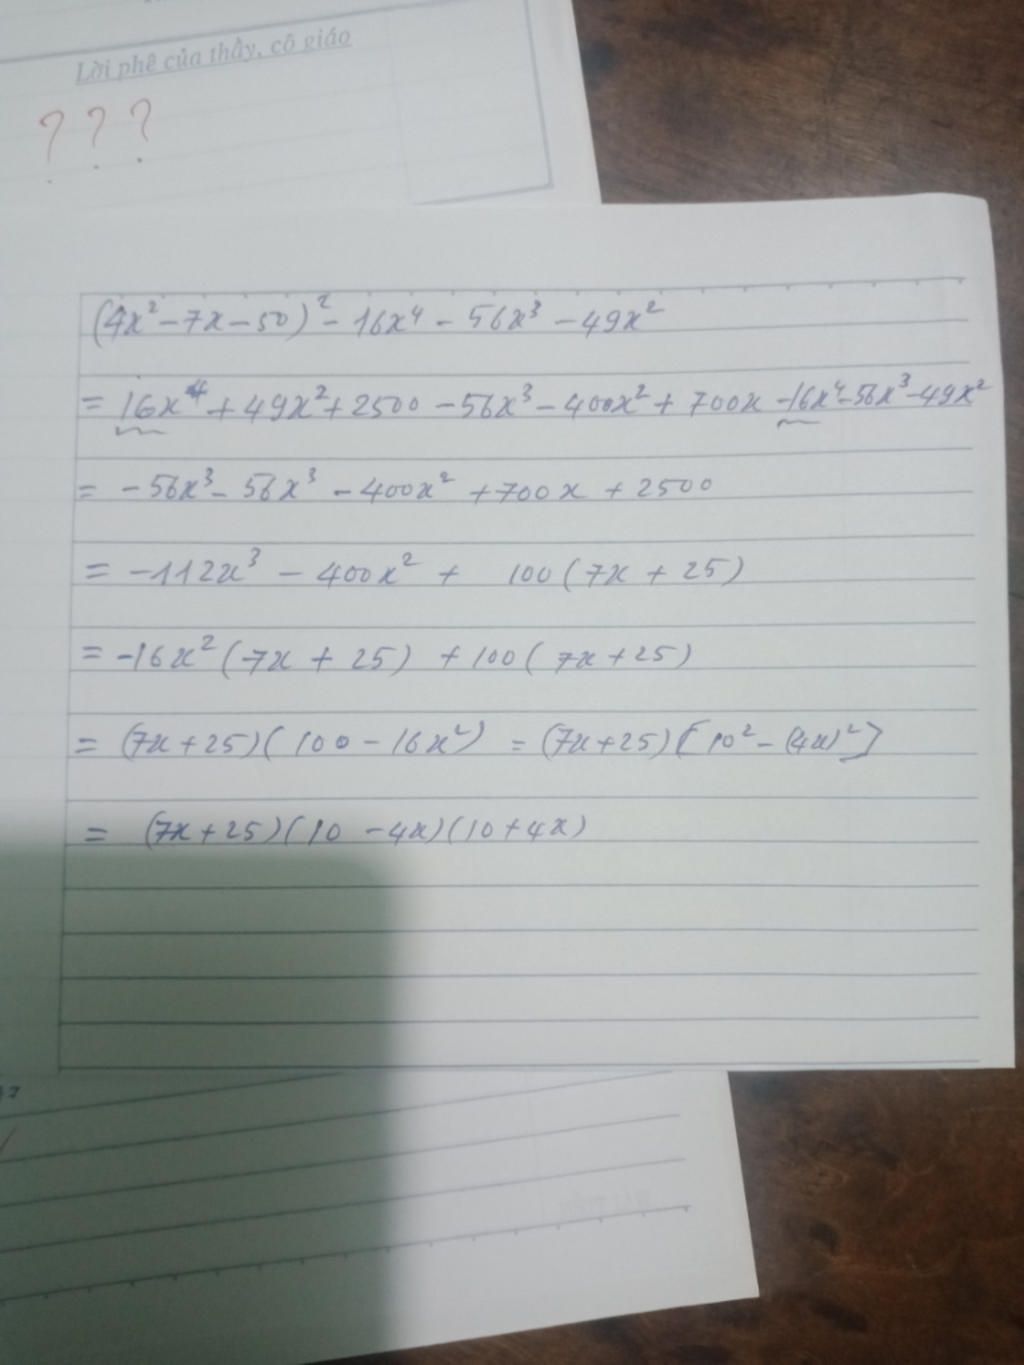 Lời phê của thầy, cô giáo
? ? ?
(4x² - 7x - 50)² - 16x⁴ - 56x³ - 49x²
= 16x⁴ + 49x² + 2500 - 56x³ - 400x² + 700x - 16x⁴ - 56x³ - 49x²
= - 56x³ - 56x³ - 400x² + 700x + 2500
= -112x³ - 400x² + 100(7x + 25)
= -16x² (7x + 25) + 100(7x + 25)
= (7x + 25)(100 - 16x²) = (7x + 25)[10² - (4x)²]
= (7x + 25)(10 - 4x)(10 + 4x)